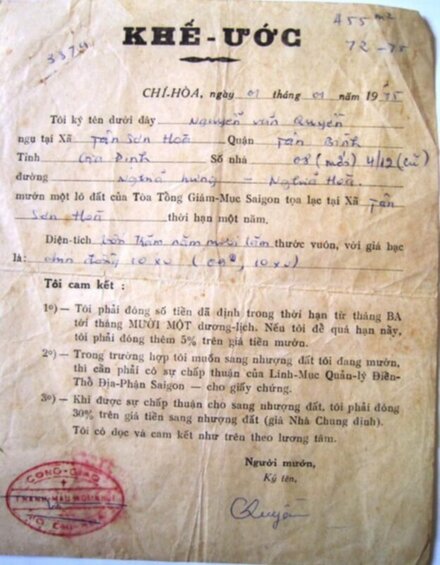 455 m2
KHẾ-ƯỚC
72-75
3379
CHÍ-HÒA, ngày 01 tháng 01 năm 1975
Tôi ký tên dưới đây Nguyễn văn Quyền
ngụ tại Xã Tân Sơn Hoà Quận Tân Bình
Tỉnh Gia Định Số nhà 08 (mới) 4/12 (cũ)
đường Nghĩa hưng – Nghĩa Hoà.
mướn một lô đất của Tòa Tổng Giám-Mục Saigon tọa lạc tại Xã Tân
Sơn Hoà thời hạn một năm.
Diện-tích bốn Trăm năm mươi lăm thước vuôn, với giá bạc
là: đồng 10 xu 10 xu)
Tôi cam kết :
1º) — Tôi phải đóng số tiền đã định trong thời hạn từ tháng BA
tới tháng MƯỜI MỘT dương-lịch. Nếu tôi để quá hạn nầy,
tôi phải đóng thêm 5% trên giá tiền mướn.
2º) — Trong trường hợp tôi muốn sang nhượng đất tôi đang mướn,
thì cần phải có sự chấp thuận của Linh-Mục Quản-lý Điền-
Thổ Địa-Phận Saigon — cho giấy chứng.
3º) — Khi được sự chấp thuận cho sang nhượng đất, tôi phải đóng
30% trên giá tiền sang nhượng đất (giá Nhà Chung định).
Tôi có đọc và cam kết như trên theo lương tâm.
Người mướn,
Ký tên,
CONG-GIAO
Quyền